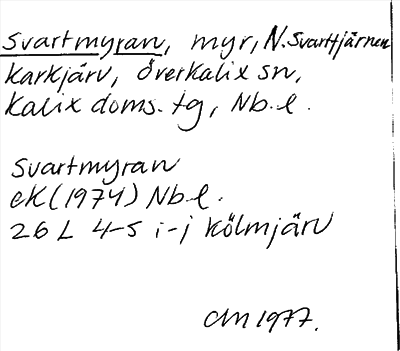 Svartmyran, myr, N. Svarttjärnen
Karkjärv, Överkalix sn,
Kalix doms. tg, Nb. l.
Svartmyran
eK (1974) Nb. l.
26 L 4-5 i-j Kölmjärv
CIM 1977.